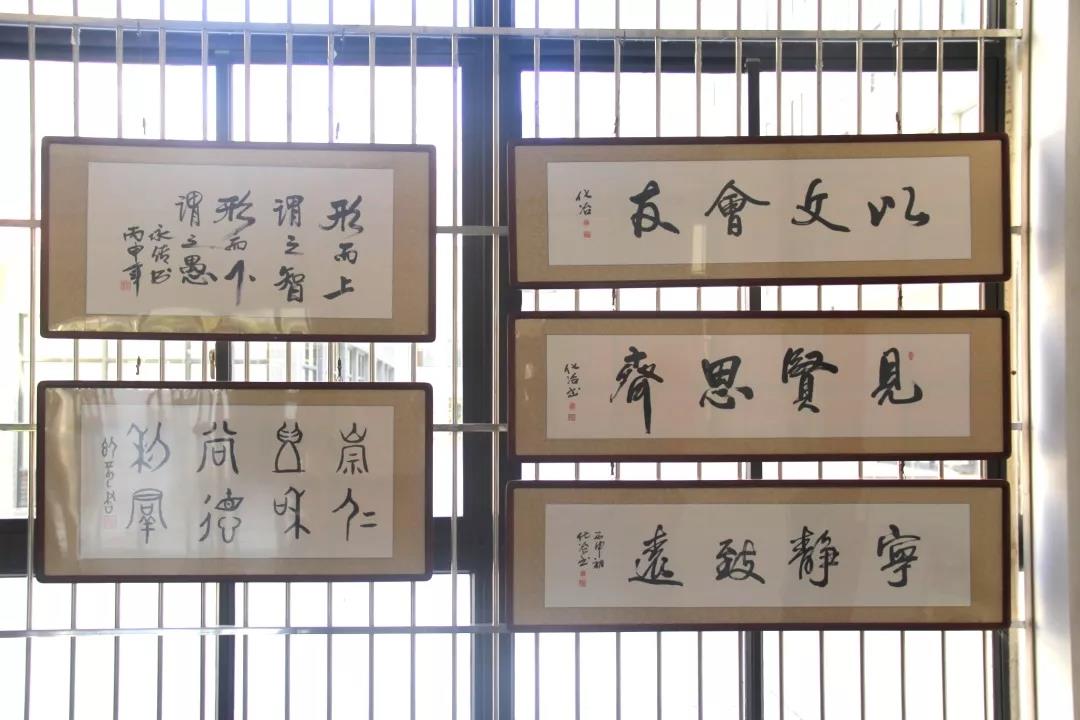 形而上
谓之智
形而下
谓之愚
丙申年
崇仁
和
尚德
群
以文會友
化冶
見賢思齊
化冶书
寧靜致遠
丙申初
化冶书